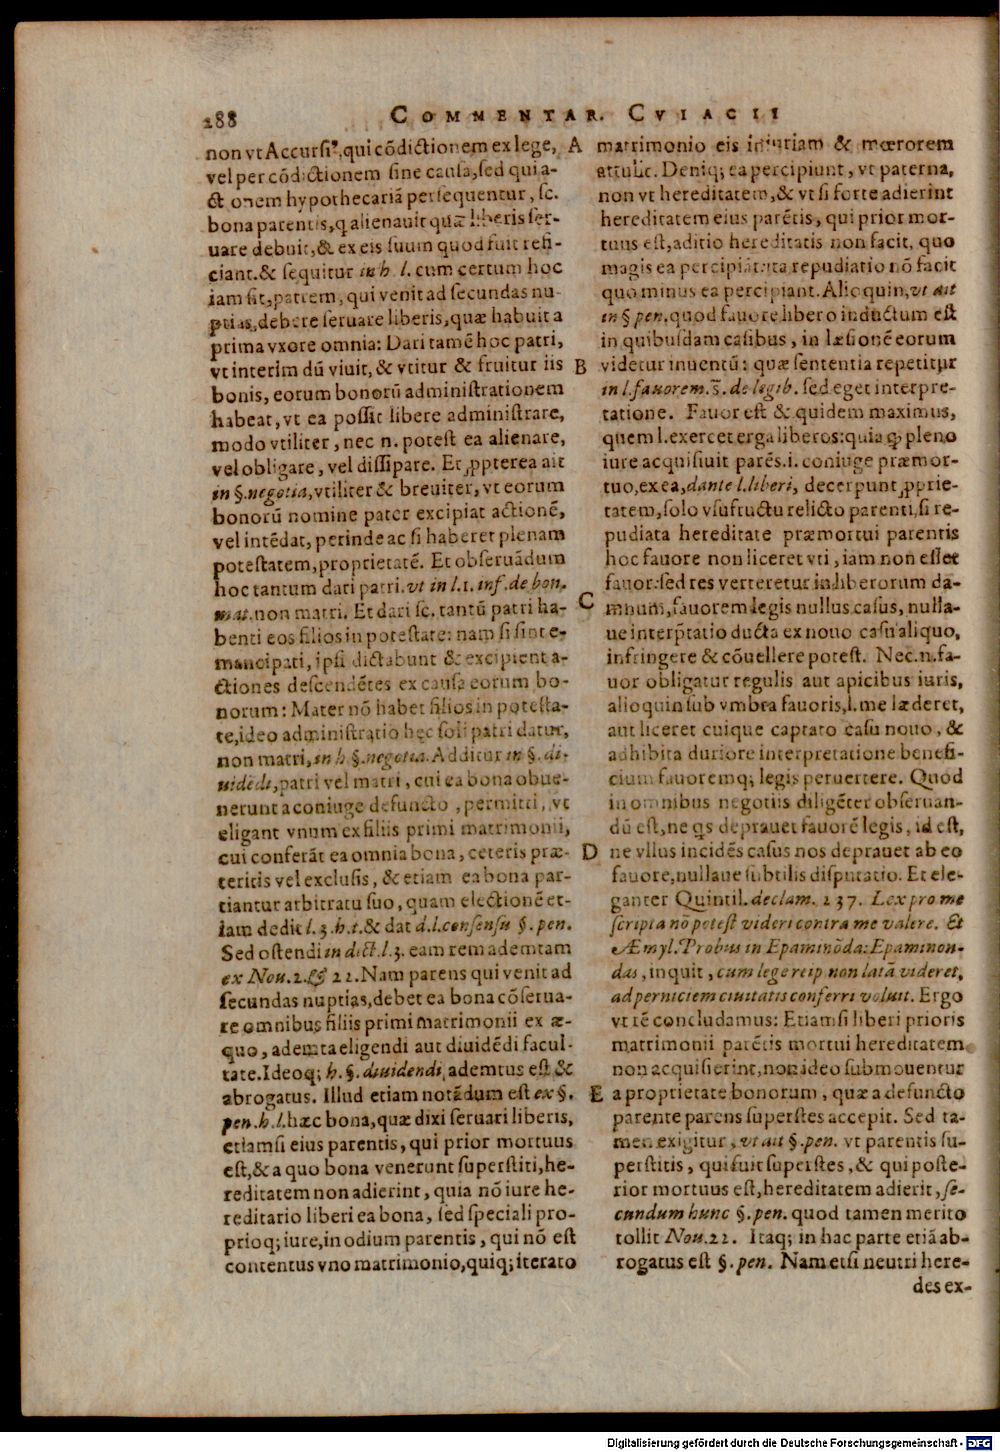 288
COMMENTAR. CVIACII
non vt Accursiꝰ, qui cōdictionem ex lege,
vel per cōdictionem sine causa, sed qui a-
ct onem hypothecariā persequentur, sc.
bona parentis, q alienauit quæ liberis ser-
uare debuit, & ex eis suum quod fuit refi-
ciant. & sequitur in h. l. cum certum hoc
iam sit, patrem, qui venit ad secundas nu-
ptias, debere seruare liberis, quæ habuit a
prima vxore omnia: Dari tamē hoc patri,
vt interim dū viuit, & vtitur & fruitur iis
bonis, eorum bonorū administrationem
habeat, vt ea possit libere administrare,
modo vtiliter, nec n. potest ea alienare,
vel obligare, vel dissipare. Et ꝓpterea ait
in §. negotia, vtiliter & breuiter, vt eorum
bonorū nomine pater excipiat actionē,
vel intēdat, perinde ac si haberet plenam
potestatem, proprietatē. Et obseruādum
hoc tantum dari patri. vt in l.1. inf. de bon.
mat. non matri. Et dari sc. tantū patri ha-
benti eos filios in potestate: nam si sint e-
mancipati, ipsi dictabunt & excipient a-
ctiones descendētes ex causa eorum bo-
norum: Mater nō habet filios in potesta-
te, ideo administratio hęc soli patri datur,
non matri, in h. §. negotia. Additur in §. di-
uidēdi, patri vel matri, cui ea bona obue-
nerunt a coniuge defuncto, permitti, vt
eligant vnum ex filiis primi matrimonii,
cui conferāt ea omnia bona, ceteris præ-
teritis vel exclusis, & etiam ea bona par-
tiantur arbitratu suo, quam electionē et-
iam dedit l. 3. h. t. & dat d. l. consensu §. pen.
Sed ostendi in dict. l. 3. eam rem ademtam
ex Nou. 2. & 22. Nam parens qui venit ad
secundas nuptias, debet ea bona cōserua-
re omnibus filiis primi matrimonii ex æ-
quo, ademta eligendi aut diuidēdi facul-
tate. Ideoq; h. §. diuidendi, ademtus est &
abrogatus. Illud etiam notādum est ex §.
pen. h. l. hæc bona, quæ dixi seruari liberis,
etiamsi eius parentis, qui prior mortuus
est, & a quo bona venerunt superstiti, he-
reditatem non adierint, quia nō iure he-
reditario liberi ea bona, sed speciali pro-
prioq; iure, in odium parentis, qui nō est
contentus vno matrimonio, quiq; iterato
A
B
C
D
E
matrimonio eis iniuriam & mœrorem
attulit. Deniq; ea percipiunt, vt paterna,
non vt hereditatem, & vt si forte adierint
hereditatem eius parētis, qui prior mor-
tuus est, aditio hereditatis non facit, quo
magis ea percipiāt: ita repudiatio nō facit
quo minus ea percipiant. Alioquin, vt ait
in § pen. quod fauore libero inductum est
in quibusdam casibus, in læsionē eorum
videtur inuentū: quæ sententia repetitur
in l. fauorem. 5. de legib. sed eget interpre-
tatione. Fauor est & quidem maximus,
quem l. exercet erga liberos: quia ꝙ pleno
iure acquisiuit parēs. i. coniuge præmor-
tuo, ex ea, dante l. liberi, decerpunt ꝓprie-
tatem, solo vsufructu relicto parenti, si re-
pudiata hereditate præmortui parentis
hoc fauore non liceret vti, iam non esset
fauor: sed res verteretur in liberorum da-
mnum, fauorem legis nullus casus, nulla-
ue interp̄tatio ducta ex nouo casu aliquo,
infringere & cōuellere potest. Nec. n. fa-
uor obligatur regulis aut apicibus iuris,
alioquin sub vmbra fauoris, l. me læderet,
aut liceret cuique captato casu nouo, &
adhibita duriore interpretatione benefi-
cium fauoremq; legis peruertere. Quod
in omnibus negotiis diligēter obseruan-
dū est, ne qs deprauet fauorē legis, id est,
ne vllus incidēs casus nos deprauet ab eo
fauore, nullaue subtilis disputatio. Et ele-
ganter Quintil. declam. 237. Lex pro me
scripta nō potest videri contra me valere. Et
Æmyl. Probus in Epaminōda: Epaminon-
das, inquit, cum lege reip non latā videret,
ad perniciem ciuitatis conferri voluit. Ergo
vt rē concludamus: Etiamsi liberi prioris
matrimonii parētis mortui hereditatem
non acquisierint, non ideo submouentur
a proprietate bonorum, quæ a defuncto
parente parens superstes accepit. Sed ta-
men exigitur, vt ait §. pen. vt parentis su-
perstitis, qui fuit superstes, & qui poste-
rior mortuus est, hereditatem adierit, se-
cundum hunc §. pen. quod tamen merito
tollit Nou. 22. Itaq; in hac parte etiā ab-
rogatus est §. pen. Nam etsi neutri here-
des ex-
Digitalisierung gefördert durch die Deutsche Forschungsgemeinschaft - DFG